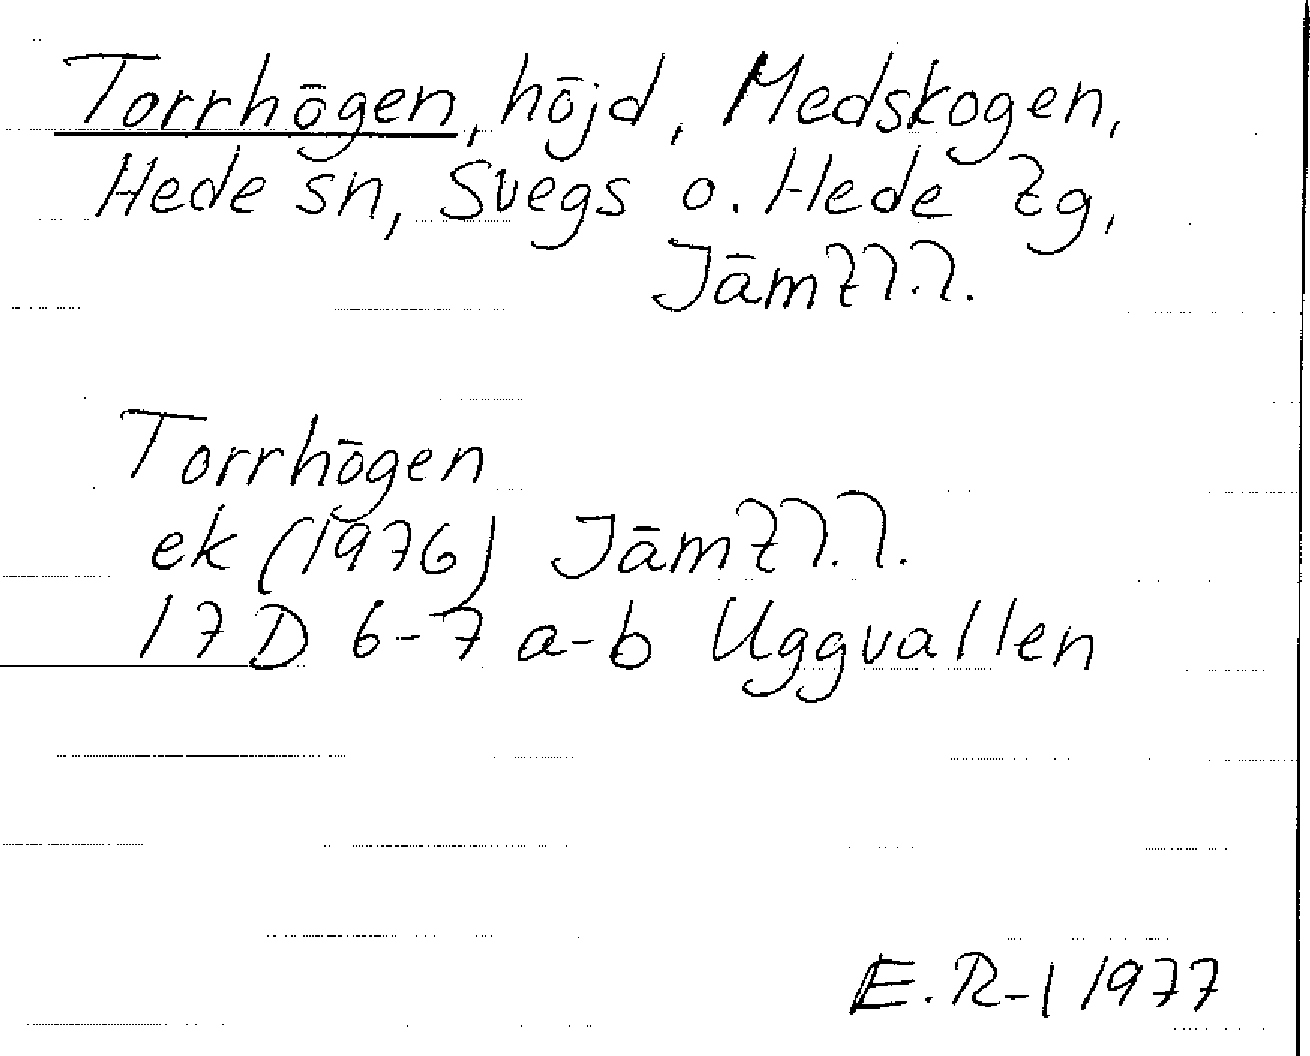 Torrhögen, höjd, Medskogen,
Hede sn, Svegs o. Hede tg,
Jämtl.l.
Torrhögen
ek (1976) Jämtl.l.
17D 6-7 a-b Uggvallen
E.R-l 1977